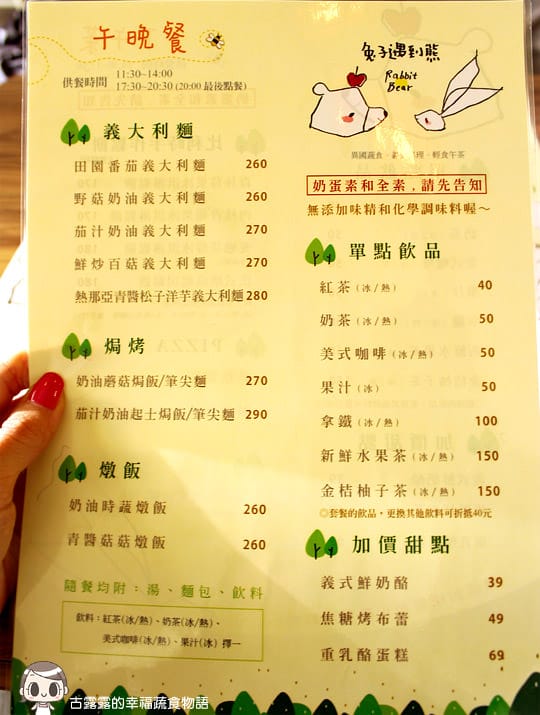 午晚餐
供餐時間 11:30~14:00
17:30~20:30 (20:00 最後點餐)
義大利麵
田園番茄義大利麵 260
野菇奶油義大利麵 260
茄汁奶油義大利麵 270
鮮炒百菇義大利麵 270
熱那亞青醬松子洋芋義大利麵 280
焗烤
奶油蘑菇焗飯/筆尖麵 270
茄汁奶油起士焗飯/筆尖麵 290
燉飯
奶油時蔬燉飯 260
青醬菇菇燉飯 260
隨餐均附：湯、麵包、飲料
飲料：紅茶(冰/熱)、奶茶(冰/熱)、
美式咖啡(冰/熱)、果汁(冰) 擇一
兔子遇到熊
Rabbit
Bear
異國蔬食．理．輕食午茶
奶蛋素和全素，請先告知
無添加味精和化學調味料喔～
單點飲品
紅茶(冰/熱) 40
奶茶(冰/熱) 50
美式咖啡(冰/熱) 50
果汁(冰) 50
拿鐵(冰/熱) 100
新鮮水果茶(冰/熱) 150
金桔柚子茶(冰/熱) 150
◎套餐的飲品，更換其他飲料可折抵40元
加價甜點
義式鮮奶酪 39
焦糖烤布蕾 49
重乳酪蛋糕 69
古露露的幸福蔬食物語